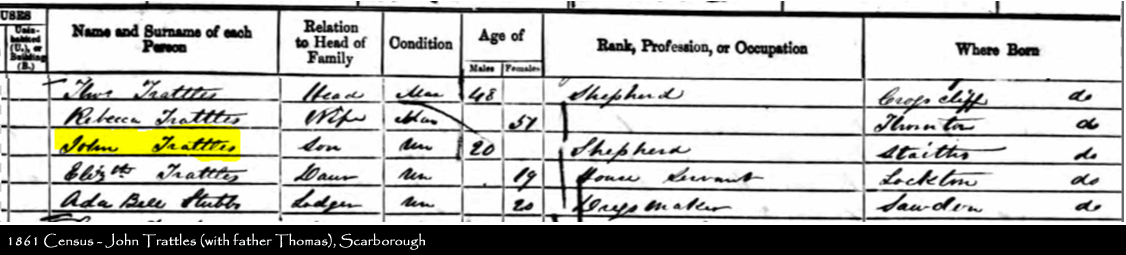 USES
Unin-habited (U.), or Building (B.)
Name and Surname of each Person
Relation to Head of Family
Condition
Age of
Males Females
Rank, Profession, or Occupation
Where Born
Thos Trattles Head Mar 48 Shepherd Cropscliff do
Rebecca Trattles Wife Mar 57 Thornton do
John Trattles Son Un 20 Shepherd Staiths do
Elizth Trattles Daur Un 19 House Servant Lockton do
Ada Bell Stubbs Lodger Un 20 Dressmaker Sawdon do
1861 Census - John Trattles (with father Thomas), Scarborough